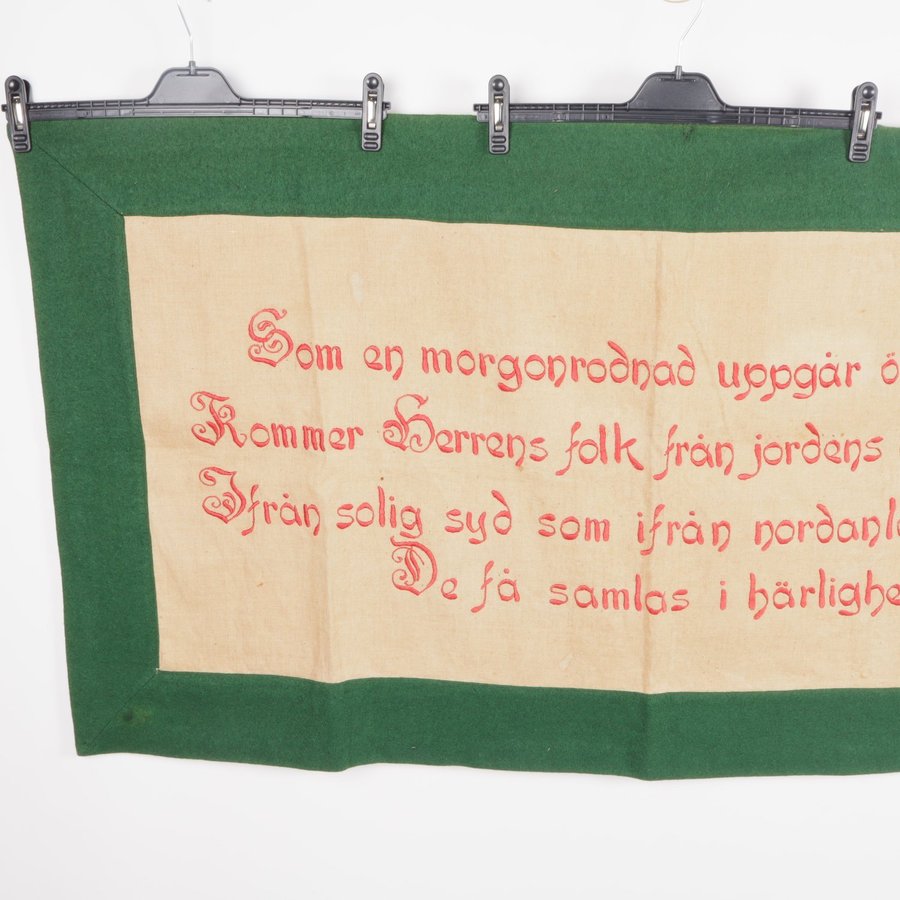 Som en morgonrodnad uppgår ö
Kommer Herrens folk från jordens
Ifrån solig syd som ifrån nordanl
De få samlas i härlighe